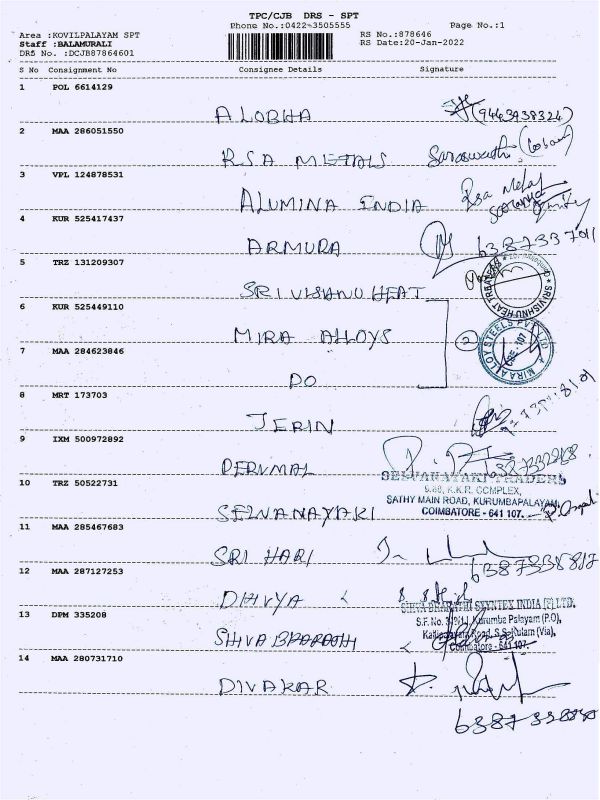 TPC/CJB DRS - SPT
Phone No.:0422-3505555 Page No.:1
Area :KOVILPALAYAM SPT RS No.:878646
Staff :BALAMURALI RS Date:20-Jan-2022
DRS No. :DCJB87864601
S No Consignment No Consignee Details Signature
1 POL 6614129
A LOBHA (9443938324)
2 MAA 286051550
RSA METALS Saraswathi
3 VPL 124878531
ALUMINA INDIA Rsa Metals
4 KUR 525417437
ARMURA 6387337011
5 TRZ 131209307
SRI VISHNU HEAT SRI VISHNU HEAT TREATERS
6 KUR 525449110
MIRA ALLOYS 2 MIRA ALLOY STEELS PVT LTD CBE-107
7 MAA 284623846
DO
8 MRT 173703
JERIN
9 IXM 500972892
PERUMAL
SELVANAYAKI TRADERS
10 TRZ 50522731
K.K.R. COMPLEX,
SATHY MAIN ROAD, KURUMBAPALAYAM,
SELVANAYAKI COIMBATORE - 641 107.
11 MAA 285467683
SRI HARI
12 MAA 287127253
DHIVYA
SHIVA BHARATHI SKYNTEX INDIA (P) LTD.
13 DPM 335208
Kurumba Palayam (P.O),
Road, S.S.Kulam (Via),
SHIVA BHARATHI Coimbatore - 641 107.
14 MAA 280731710
DIVAKAR